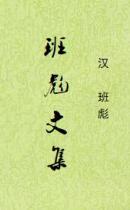 汉 班彪
班彪文集